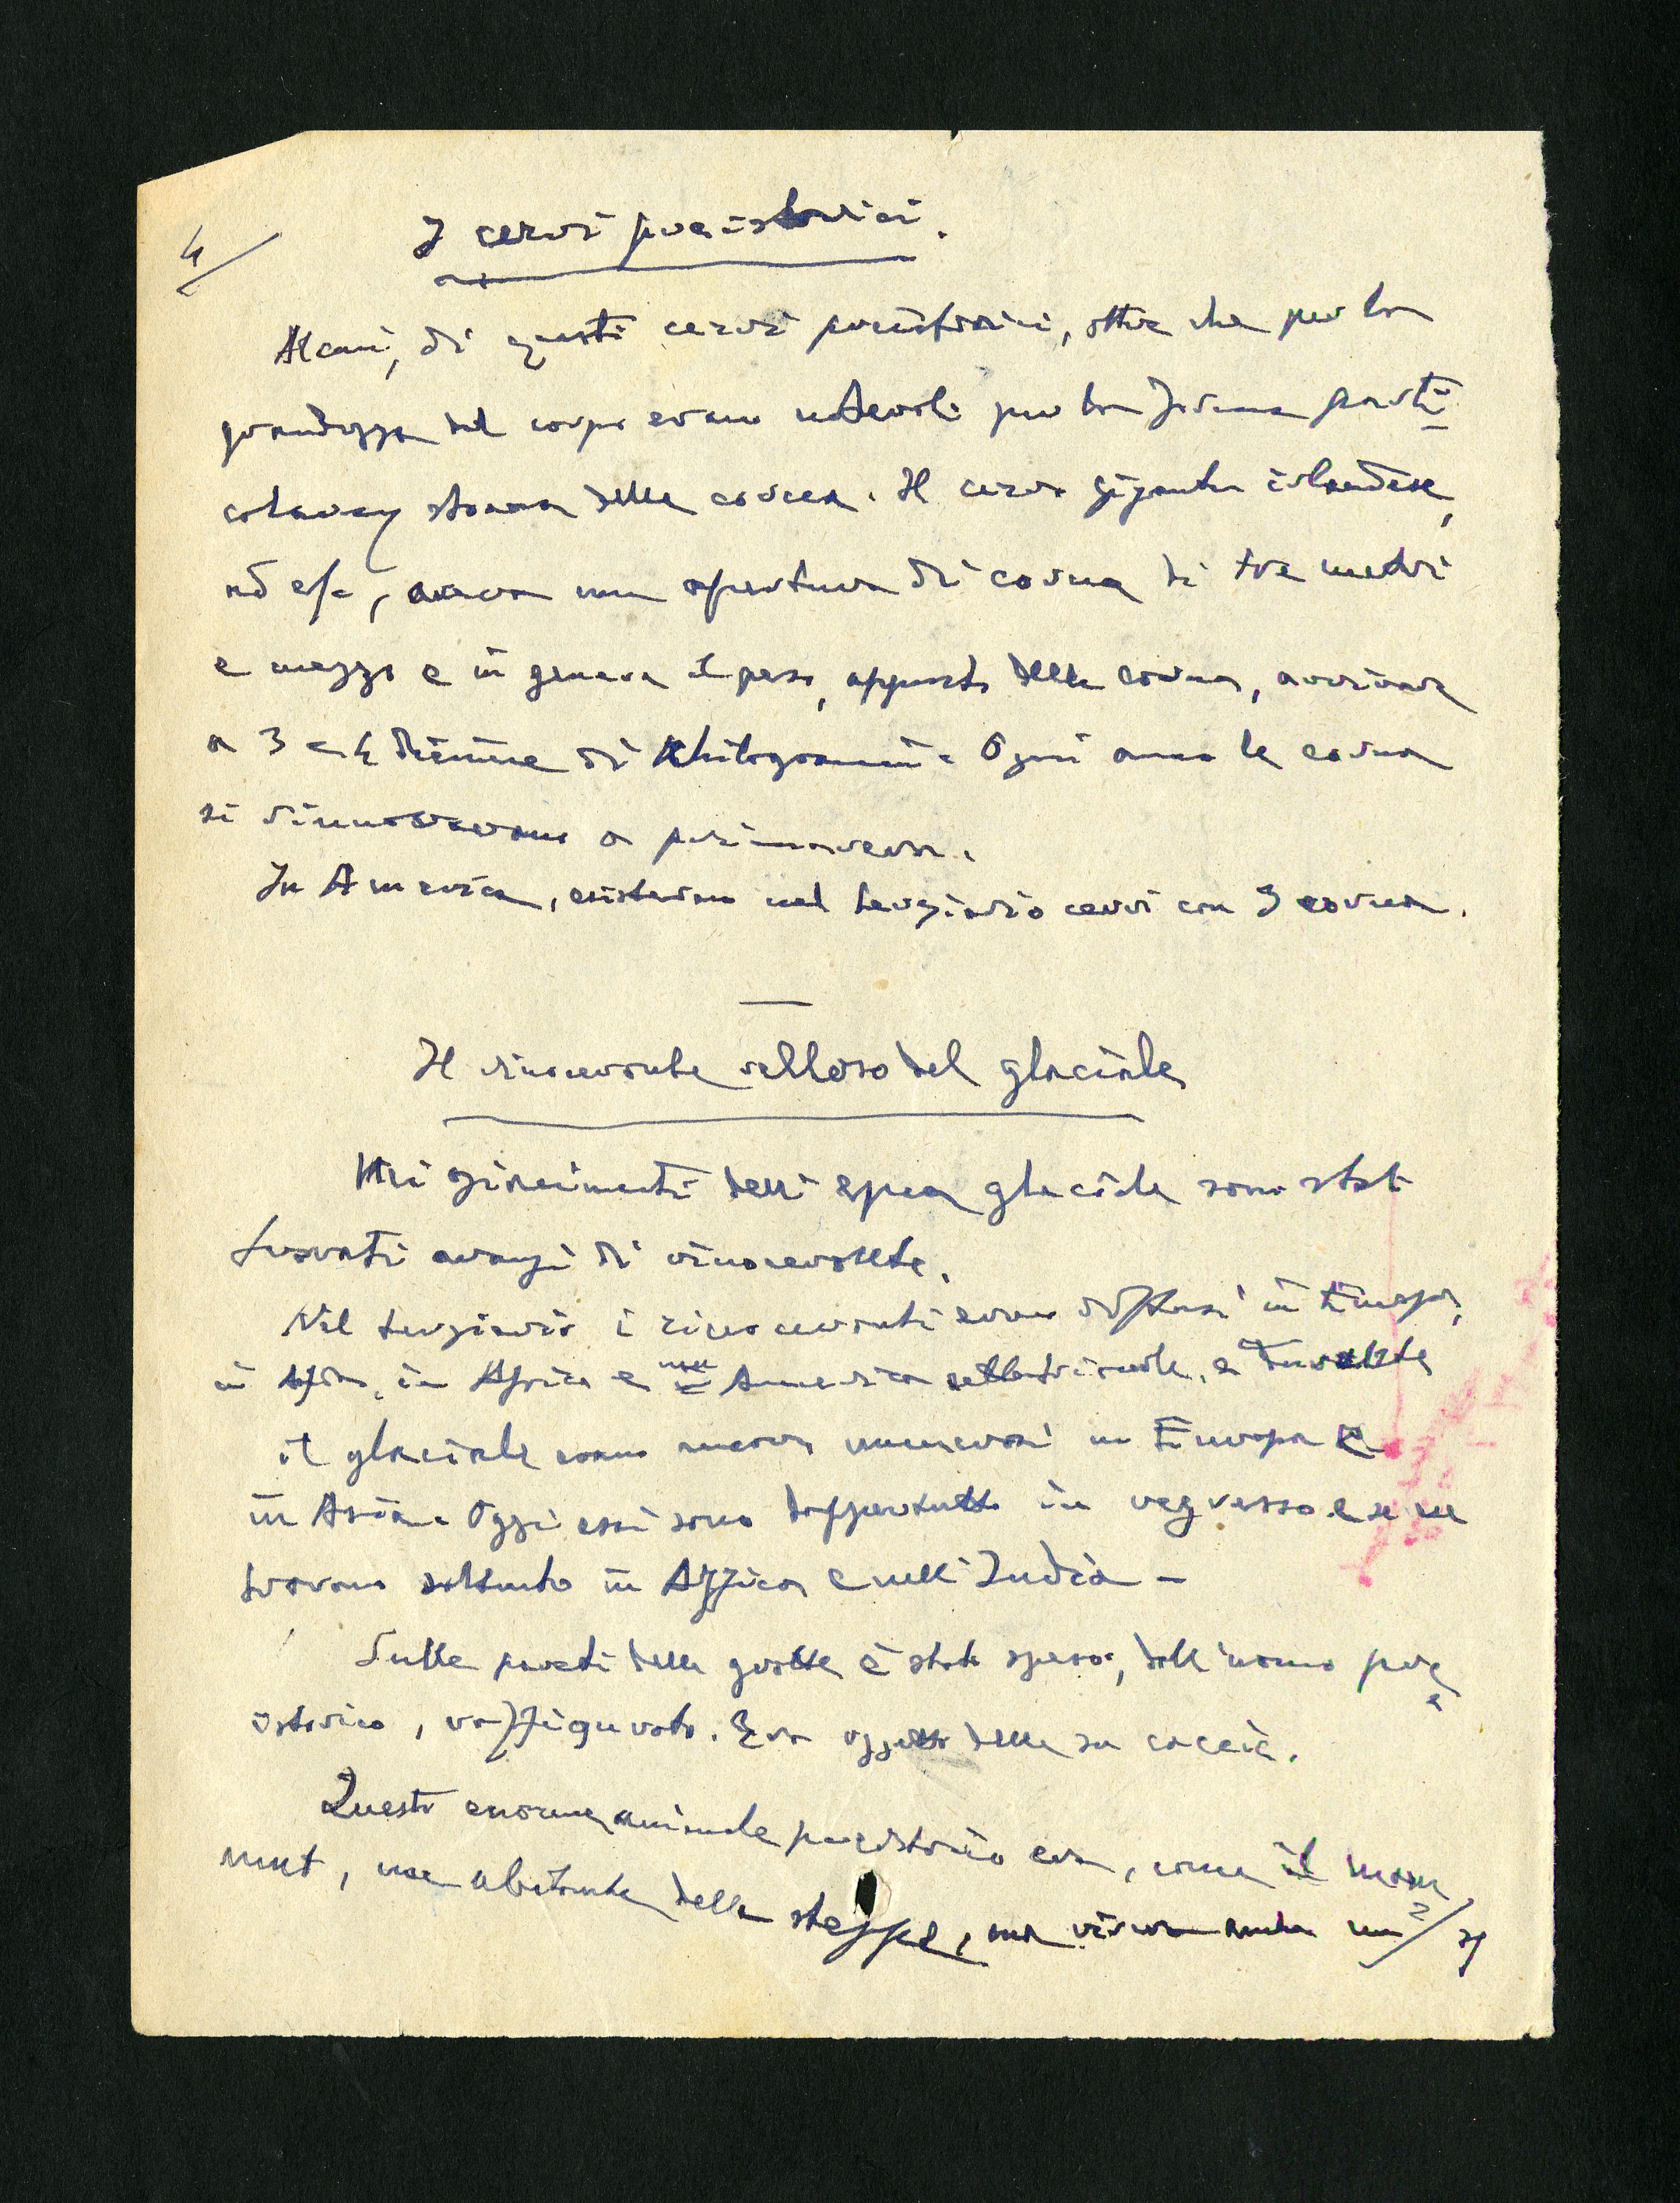 4/
I cervi preistorici.
Alcuni, di questi cervi preistorici, oltre che per la
grandezza del corpo erano notevoli per la forma parti
colarmente strana delle corna. Il cervo gigante irlandese,
ad es/e, aveva una apertura di corna di tre metri
e mezzo e in genere il peso, appunto delle corna, arrivava
a 3 e 4 diecine di Khilogrammi. Ogni anno le corna
si rinnovavano a primavera.
In America, esistevano nel terziario cervi con 3 corna.
Il rinoceronte velloso del glaciale
Nei giacimenti dell'epoca glaciale sono stati
trovati avanzi di rinoceronte.
Nel terziario i rinoceronti erano diffusi in Europa,
in Asia, in Africa e nell'America settentrionale, e durante
il glaciale erano ancora numerosi in Europa e
in Asia. Oggi essi sono dappertutto in regresso e se ne
trovano soltanto in Affrica e nell'India -
Sulle pareti delle grotte è stato spesso, dall'uomo pre
istorico, raffigurato. Era oggetto della sua caccia.
Questo enorme animale preistorico era, come il mam
mut, un abitante delle steppe, ma viveva anche
2/